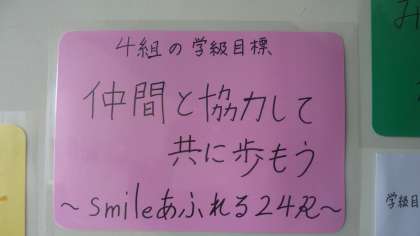 4組の学級目標
仲間と協力して
共に歩もう
～smileあふれる24R～
み
学級目